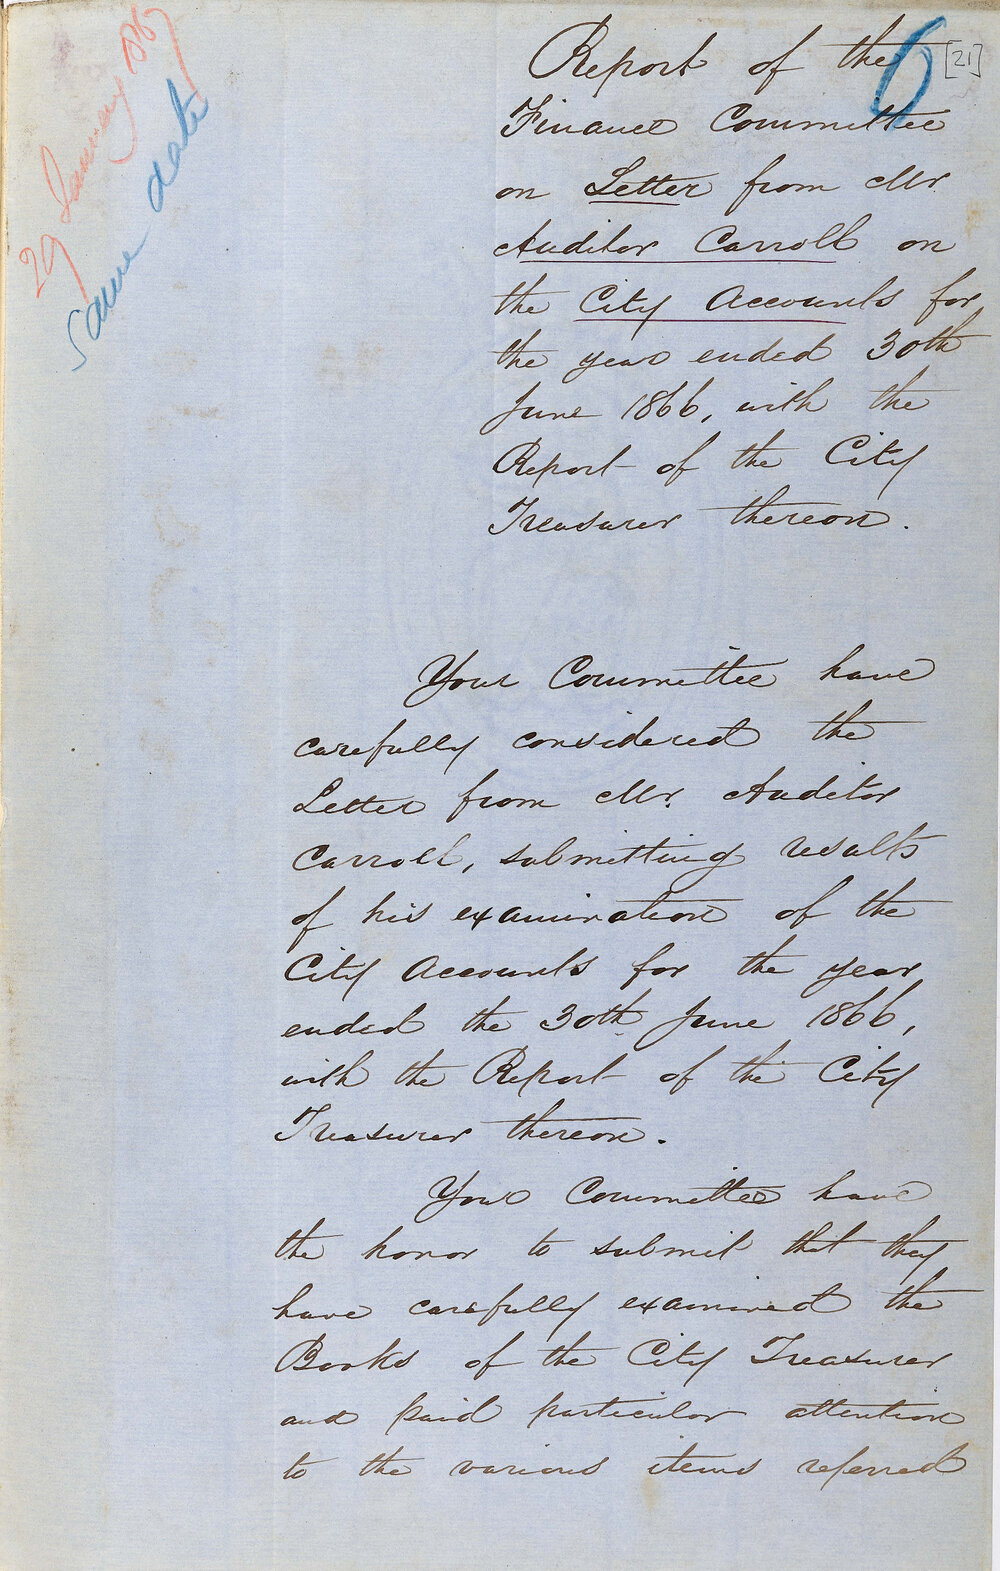 29 January 1867
same date
6
[21]
Report of the
Finance Committee
on Letter from Mr.
Auditor Carroll on
the City Accounts for
the year ended 30th
June 1866, with the
Report of the City
Treasurer thereon.
Your Committee have
carefully considered the
Letter from Mr. Auditor
Carroll, submitting results
of his examination of the
City Accounts for the year
ended the 30th June 1866,
with the Report of the City
Treasurer thereon.
Your Committee have
the honor to submit that they
have carefully examined the
Books of the City Treasurer
and paid particular attention
to the various items referred